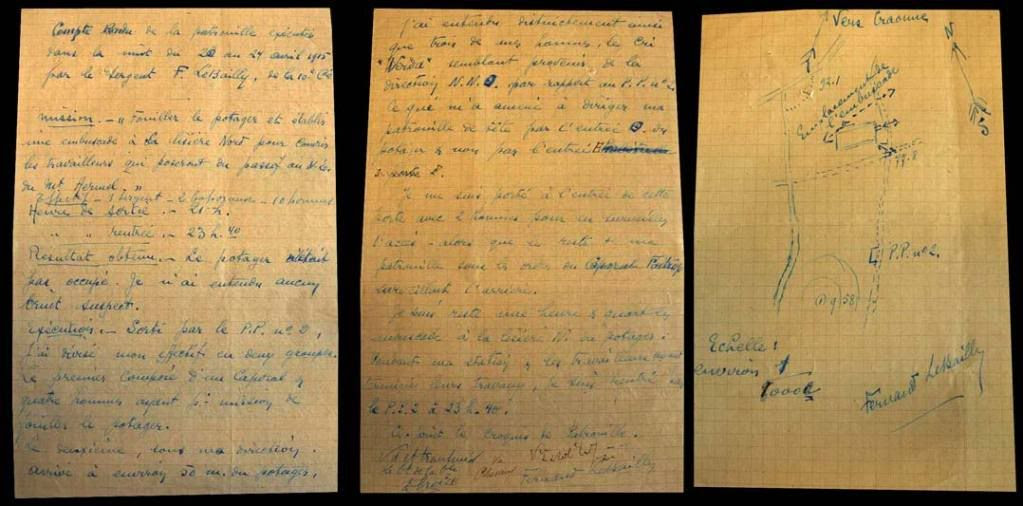 Compte Rendu de la patrouille exécutée
dans la nuit du au 24 avril 1915
par le Sergent F. LeBailly, de la 10e Cie
Mission. - "Fouiller le potager et établir
une embuscade à la lisière Nord pour couvrir
les travailleurs qui poseront du
du Mt Hermel. "
Effectif - 1 Sergent - 2 Caporaux - 10 hommes
Heure de Sortie. - 21 h.
" " rentrée. - 23 h. 40
Résultat obtenu. - Le potager n'était
pas occupé. Je n'ai entendu aucun
bruit suspect.
Exécution. - Sorti par le P.P. n° 2,
j'ai divisé mon effectif en deux groupes.
Le premier composé d'un Caporal &
quatre hommes ayant pr mission de
fouiller le potager.
Le deuxième, sous ma direction.
Arrivé à environ 50 m. du potager,
J'ai entendu distinctement ainsi
que trois de mes hommes, le cri
"Werda" semblant provenir de la
direction N.N.O. par rapport au P.P. n° 2.
Ce qui m'a amené à diriger ma
patrouille de tête par l'entrée O. du
potager & non par l'entrée
E.
Je me suis porté à l'entrée de cette
porte avec 2 hommes pour en surveiller
l'accès - alors que le reste de ma
patrouille sous les ordres du Caporal
surveillant l'arrière.
Je suis resté une heure & quart en
embuscade à la lisière N. du potager.
Pendant ma station, & les travailleurs ayant
terminé leurs travaux, je suis rentré
le P.P. 2 à 23 h. 40.
Ci-joint le croquis de patrouille.
Vu et transmis
Fernand LeBailly
Vers Craonne
N
92.1
Emplacement de
l'embuscade
P.P. n° 2.
Echelle:
environ 1
Fernand LeBailly